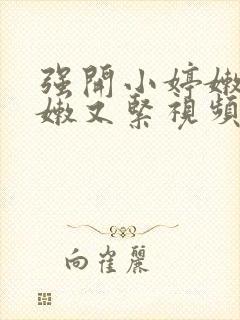 强開小婷嫩
嫩又緊視頻
向崔麗